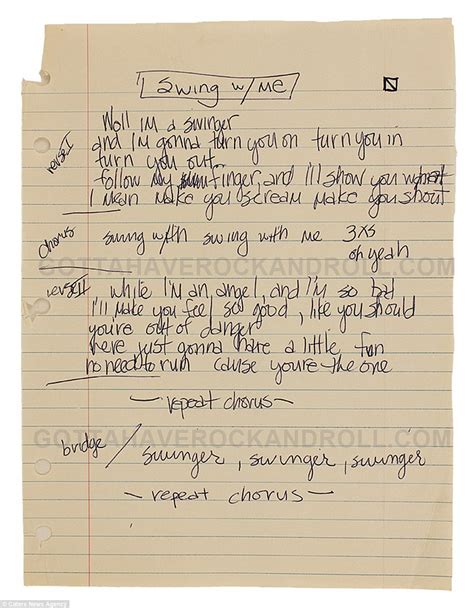 Swing w/ me
Well I'm a swinger
verse I and I'm gonna turn you on turn you in
turn you out
follow my finger, and I'll show you what
I mean make you scream make you shout
chorus swing with swing with me 3xs
oh yeah
GOTTAHAVEROCKANDROLL.COM
verse II while I'm an angel, and I'm so bad
I'll make you feel so good, like you should
you're out of danger
here just gonna have a little fun
no need to run cause youre the one
—repeat chorus—
GOTTAHAVEROCKANDROLL.COM
bridge / swinger, swinger, swinger
—repeat chorus—
© Caters News Agency